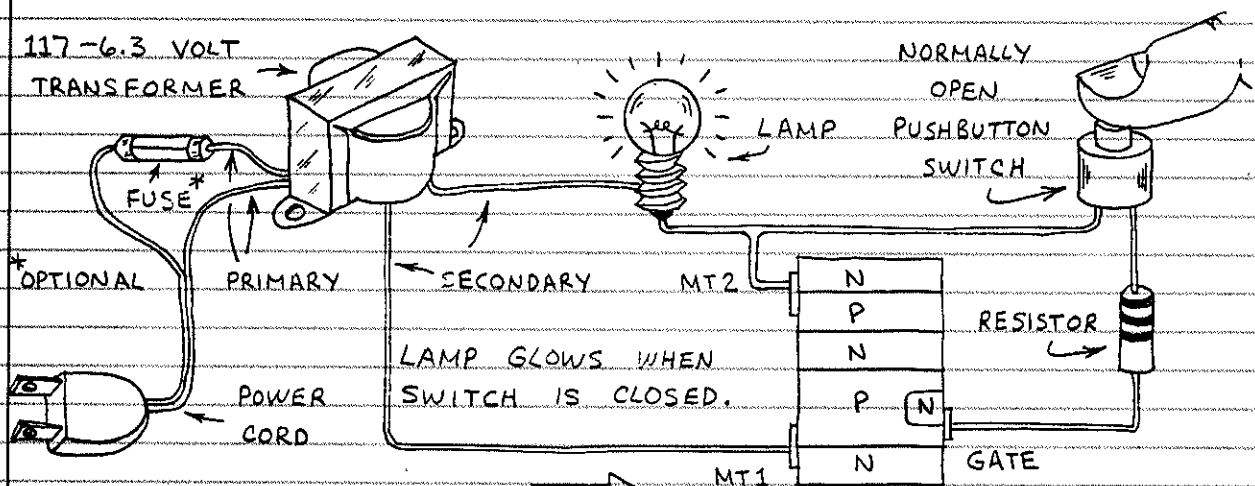 117-6.3 VOLT
TRANSFORMER
FUSE*
*OPTIONAL
PRIMARY
SECONDARY
POWER
CORD
LAMP
NORMALLY
OPEN
PUSHBUTTON
SWITCH
RESISTOR
LAMP GLOWS WHEN
SWITCH IS CLOSED.
MT2
N
P
N
P N
N
MT1
GATE